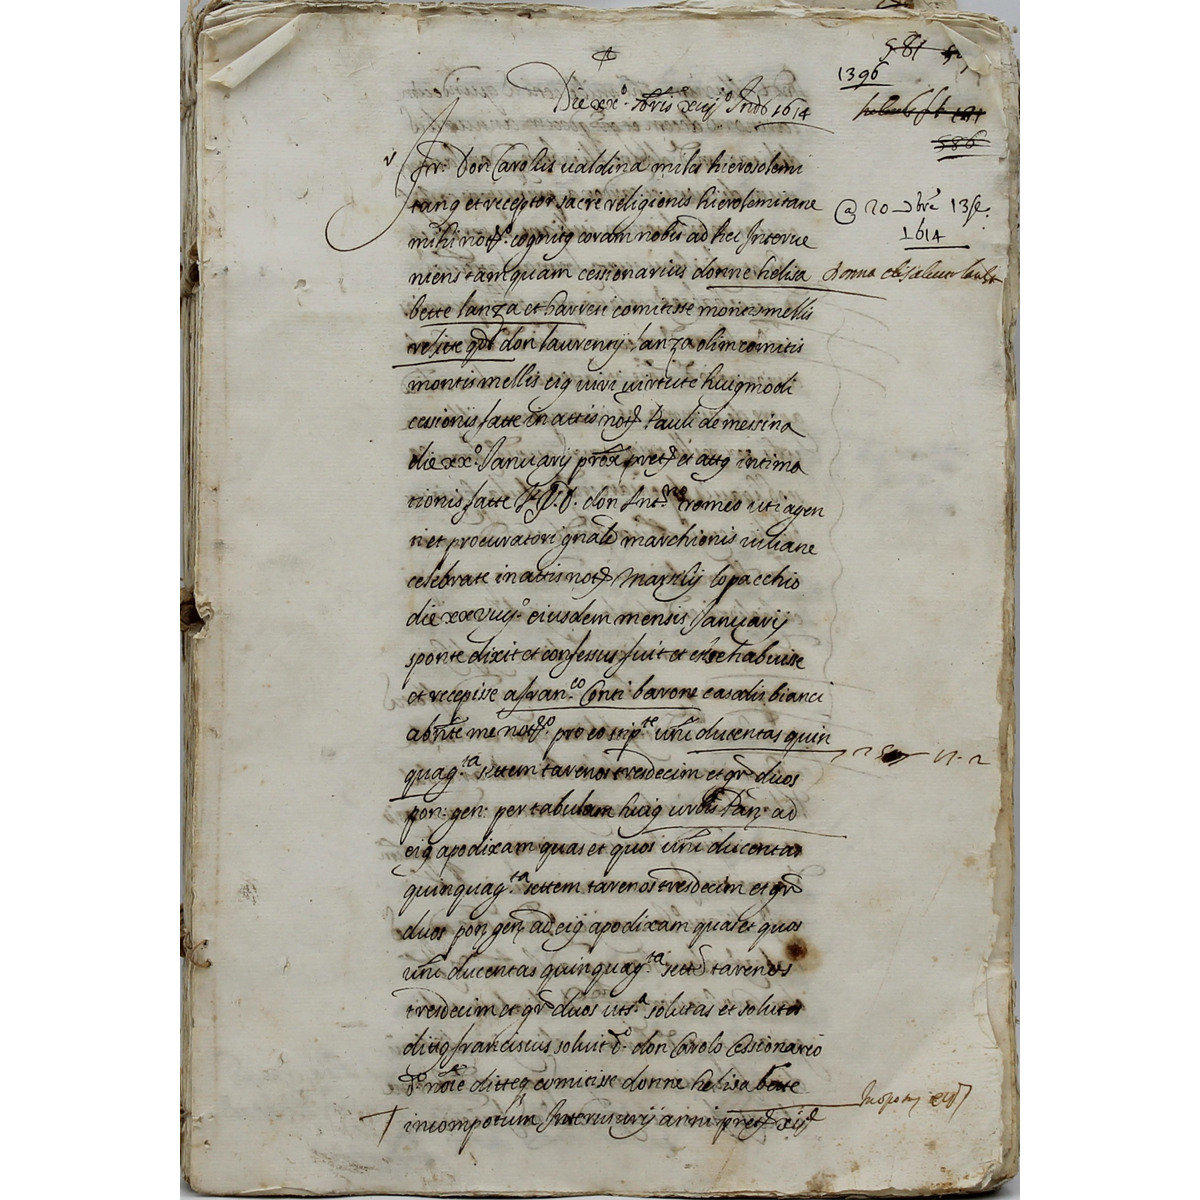 581
1396
Die xx° 8bris xiij Ind 1614
586
frr: Don Carolis ualdina miles hierosolemi
tang et receptor sacre religionis hierolemitane
mihi not° cognitg coram nobis ad hec Interue
niens tamquam cessionarius donne helisa
bette lanza et barresi comitisse montismellis
relitte qdt don laurentij lanza olim comitis
montismellis eig viri uirtute huigmodi
cessionis fatte in attis not Pauli de messina
die xx° Januarij pret et attg intima
tionis fatte don Ant no romeo uti agen
ti et procuratori gnale marchionis iuliane
celebrate in attis not Marsilij lopacchio
die xxviiij° eiusdem mensis Januarij
sponte dixit et confessus fuit et est se habuisse
et recepisse a fran.co Conti barone casalis bianci
abnte me not° pro eo stip.te unc ducentas quin
quag.ta settem tarenos tresdecim et gr duos
pon: gen: per tabulam huig urbis Pan: ad
eig apodixam quas et quos unc ducentas
quinquag.ta settem tarenos tresdecim et gr
duos pon gen ad eig apodixam quas et quos
unc ducentas quinquag.ta sette tarenos
tresdecim et gr duos uts.a solutas et solutos
dittg franciscus soluit d.° don Carolo Cessionario
d.° noie ditteg comitisse donne helisabette
in compotum Interusurij anni pret xij
@ 20 8bre 13 Je.
1614
donna elisabetta